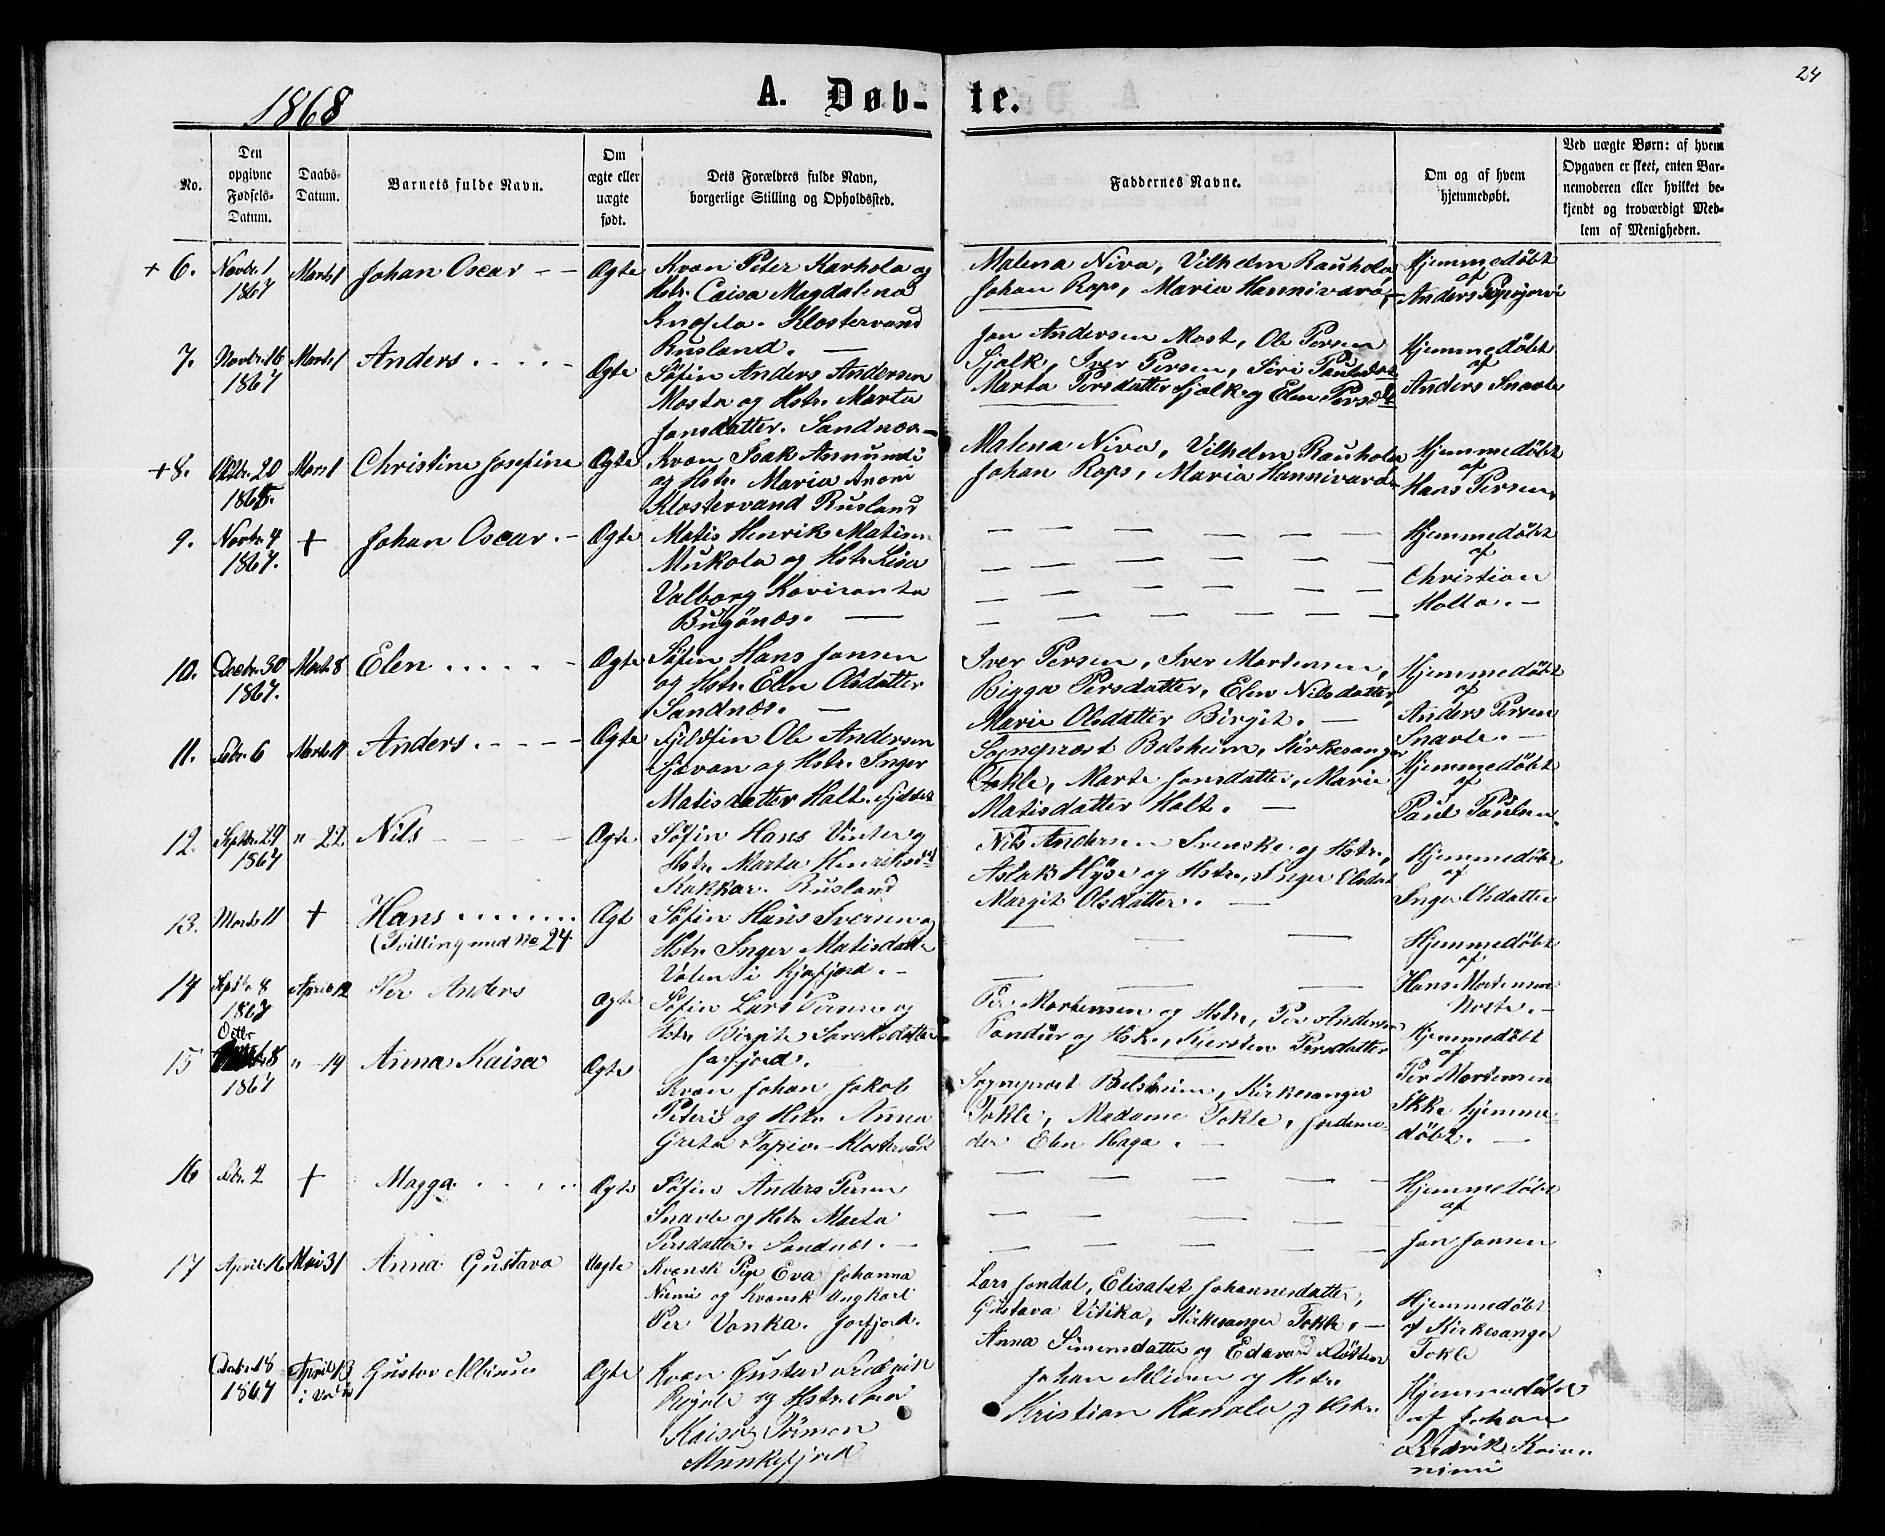 24
1868
A. Døb- te.
No.
Den opgivne Fødsels-Datum.
Daabs-Datum.
Barnets fulde Navn.
Om ægte eller uægte født.
Dets Forældres fulde Navn, borgerlige Stilling og Opholdssted.
Faddernes Navne.
Om og af hvem hjemmedøbt.
Ved uægte Børn: af hvem Opgaven er skeet, enten Barnemoderen eller hvilket bekjendt og troværdigt Medlem af Menigheden.
+ 6.
Novbr. 1
1867
Marts 1
Johan Oscar - -
Ægte
Kvæn Peter Karhola og
Hstr. Caisa Magdalena
Klostervand
Rusland. —
Malena Niva, Vilhelm Rauhola
Johan Rops, Maria Hannivara,
Hjemmedøbt
af
Anders
7.
Novbr. 16
1867
Marts 1
Anders . . . . -
Ægte
Søfin Anders Andersen
Mosta og Hstr. Marta
Jonsdatter. Sandnæs —
Jon Andersen Most, Ole Persen
Sjalk, Iver Persen, Siri Paulsdat.
Marta Persdatter Sjalk og Elen Persd.
Hjemmedøbt
af
Anders Snavle
+ 8.
Oktbr. 20
Marts 1
Christine Josefine
Ægte
Kvæn Isak Asmundi
og Hstr. Maria
Klostervand Rusland
Malena Niva, Vilhelm Rauhola
Johan Rops, Maria Hannivara
Hjemmedøbt
af
Hans Persen
9.
Novbr. 4
1867.
+
Johan Oscar. -
Ægte
Matis Henrik Matisen
Mukola og Hstr. Lisa
Valborg Koviranta
Bugönæs. —
Hjemmedøbt
af
Christian
Holla. —
10.
Decbr. 30
1867.
Marts 8
Elen . . . . . -
Ægte
Søfin Hans Jonsen
og Hstr. Elen Olsdatter
Sandnæs. —
Iver Persen, Iver Mortensen,
Bigga Persdatter, Elen Nilsdatter,
Marie Olsdatter Birgit. —
Hjemmedøbt
af
Anders Persen
Snavle. —
11.
Febr. 6
Marts 11
Anders. - - - -
Ægte
Fjeldfin Ole Andersen
Sjavan og Hstr. Inger
Matisdatter Holt.
Sogneprest Belsheim, Kirkesanger
Tokle, Marte Jonsdatter, Marie
Matisdatter Holt. —
Hjemmedøbt
af
Paul Paulsen
12.
Septbr. 29
1867
" 22.
Nils - - - -
Ægte
Søfin Hans Vinter og
Hstr. Marta Henriksd.
Kokkar. Rusland
Nils Andersen Svenske og Hstr.,
Aslak Hyse og Hstr., Inger Olsdat
Margit Olsdatter. —
Hjemmedøbt
af
Inger Olsdatter
13.
Marts 11
+
Hans . . . . . . .
(Tvilling med No 24.
Ægte
Søfin Hans Iversen og
Hstr. Inger Matisdatter
Valen i Kjøfjord. —
Hjemmedøbt
af
Hans Mortensen
Noste. —
14
Septbr. 8
1867
April 12
Per Anders
Ægte
Søfin Lars Persen og
Hstr. Birgite Larsdatter
Jarfjord. —
Per Mortensen og Hstr., Per Andersen
Pandur og Hstr., Kjersten Persdatter
Hjemmedøbt
af
Per Mortensen
15
Octbr
8
1867
" 19
Anna Kaisa
Ægte
Kvæn Johan Jakob
Peteri og Hstr. Anna
Greta Tapio.
Sogneprest Belsheim, Kirkesanger
Tokle, Madame Tokle, Jordemo-
der Elen Haga. —
Ikke hjemme-
døbt. —
16
Febr. 2
+
Magga . . . . .
Ægte
Søfin Anders Persen
Snavle og Hstr. Marta
Persdatter. Sandnæs. —
Hjemmedøbt
af
Jon Jonsen
17
April 16
Mai 31
Anna Gustava
Uægte
Kvænsk Pige Eva Johanna
Niemi og Kvænsk Ungkarl
Per Vonka. Jarfjord.
Lars Jondal, Elisabet Johannesdatter,
Gustava Vitika, Kirkesanger Tokle, —
Anna Simensdatter og Edevard
Hjemmedøbt
af Kirkesanger
Tokle
Octbr. 18
1867
April 13
Gustav Albinus
Ægte
Kvæn Gustav Fredrik
og Hstr.
Kaisa
Munkefjord
Johan og Hstr.
Kristian og Hstr.
Hjemmedøbt
af Johan
Fredrik
niemi